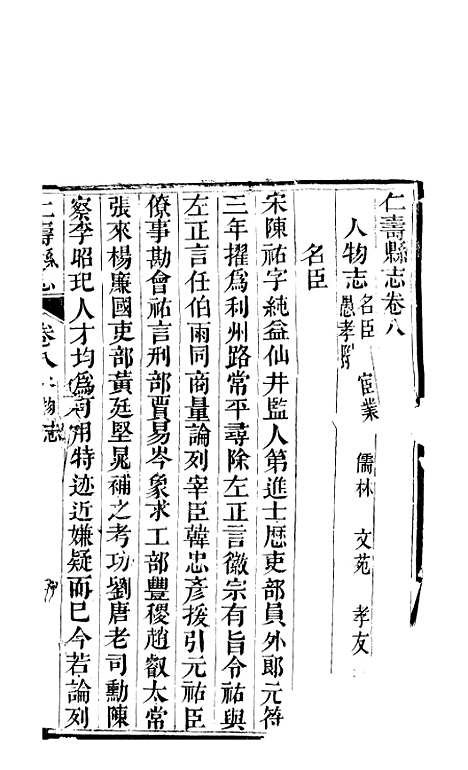 仁壽縣志卷八
人物志 名臣 宦業 儒林 文苑 孝友
愚孝附
名臣
宋陳祐字純益仙井監人第進士歴吏部員外郎元符
三年擢爲利州路常平尋除左正言徽宗有旨令祐與
左正言任伯雨同商量論列宰臣韓忠彥援引元祐臣
僚事勘會祐言刑部賈易岑象求工部豐稷趙叡太常
張來楊廉國吏部黃廷堅晁補之考功劉唐老司勳陳
察李昭玘人才均爲可用特迹近嫌疑而已今若論列
仁壽縣志
卷八 人物志